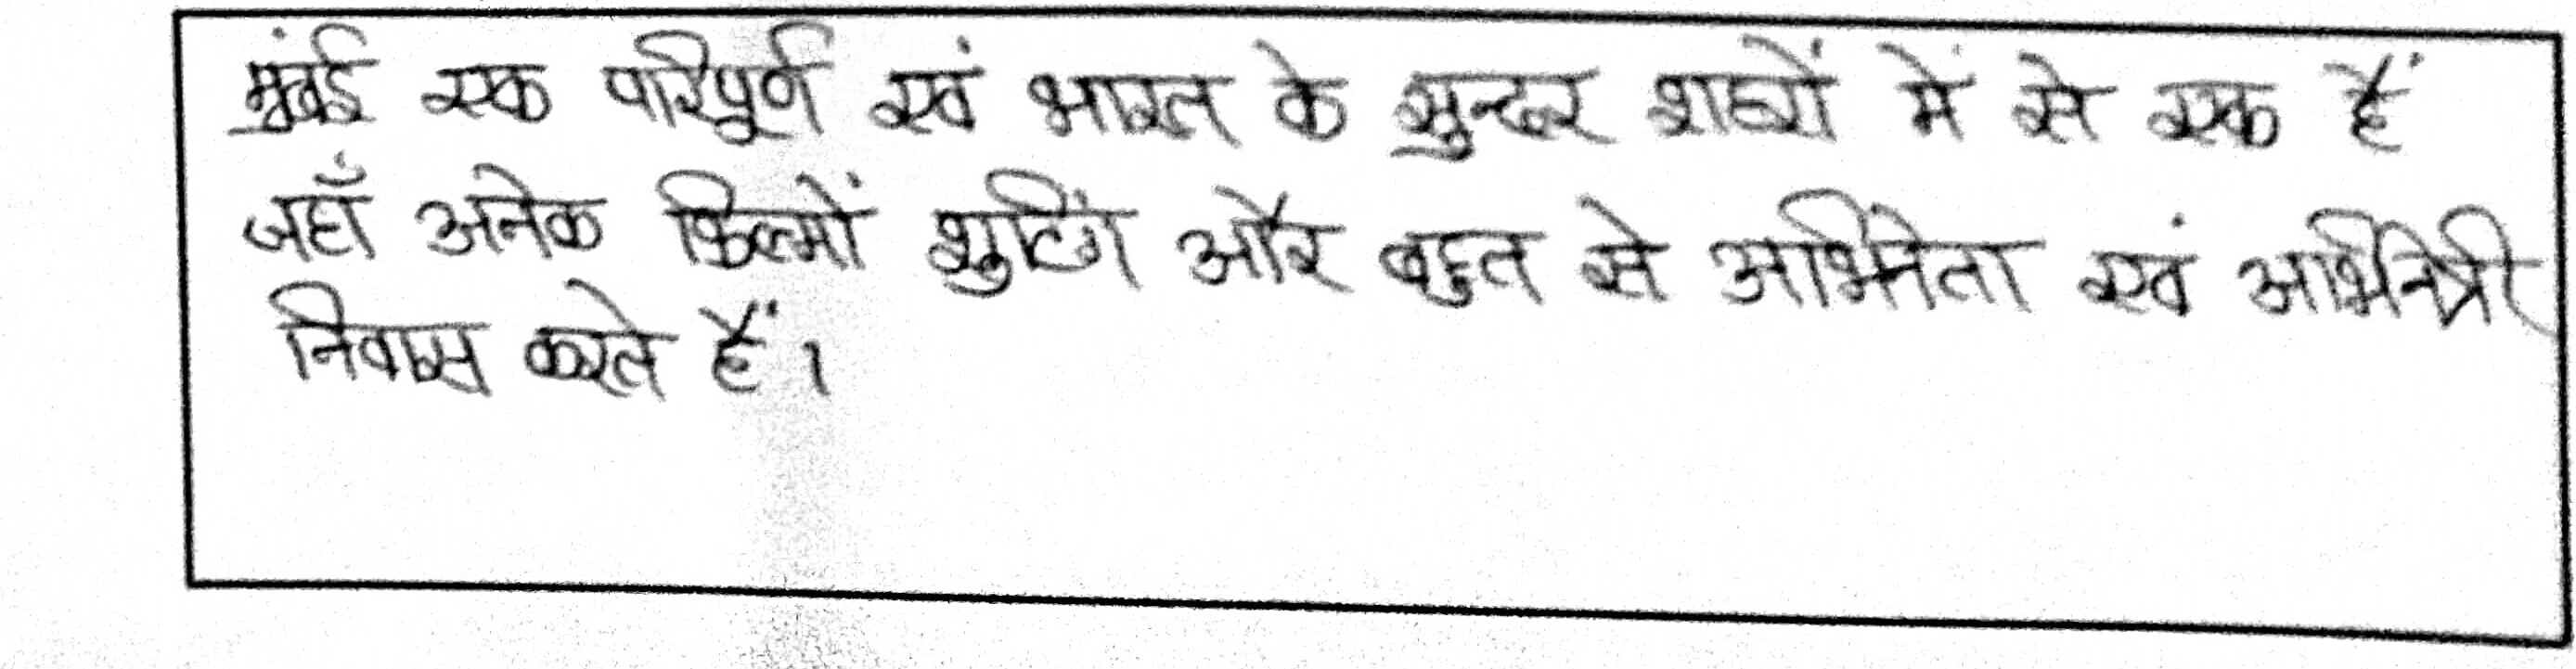 मुंबई एक परिपूर्ण एवं भारत के सुन्दर शहरों में से एक हैं
जहाँ अनेक फिल्मों शुटिंग और बहुत से अभिनेता एवं अभिनेत्री
निवास करते हैं।